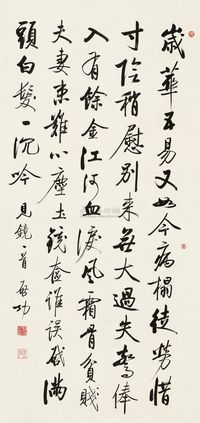 歲華五易又如今病榻徒勞惜
寸陰稍慰別来無大過失驚俸
入有餘金江河血淚風霜骨貧賤
夫妻患難心塵土鏡奩誰誤啟滿
頭白髮一沉吟 見鏡一首 啟功